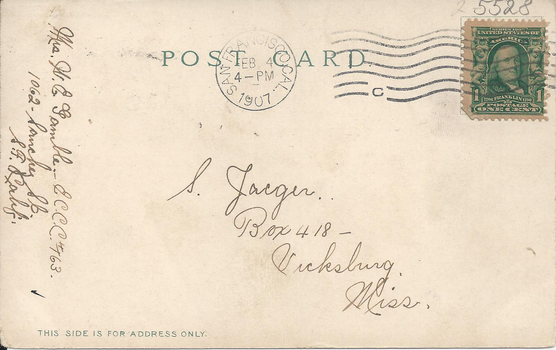 5528
POST CARD
SAN FRANCISCO, CAL.
FEB 4
4-PM
1907
C
UNITED STATES OF
AMERICA
1 POSTAGE 1
ONE CENT
Mrs. W. E. Gamble - S.C.C.C. #763.
1062 - Sanchez St.
S.F. Calif.
S. Jaeger.
Box 418 -
Vicksburg,
Miss.
THIS SIDE IS FOR ADDRESS ONLY.